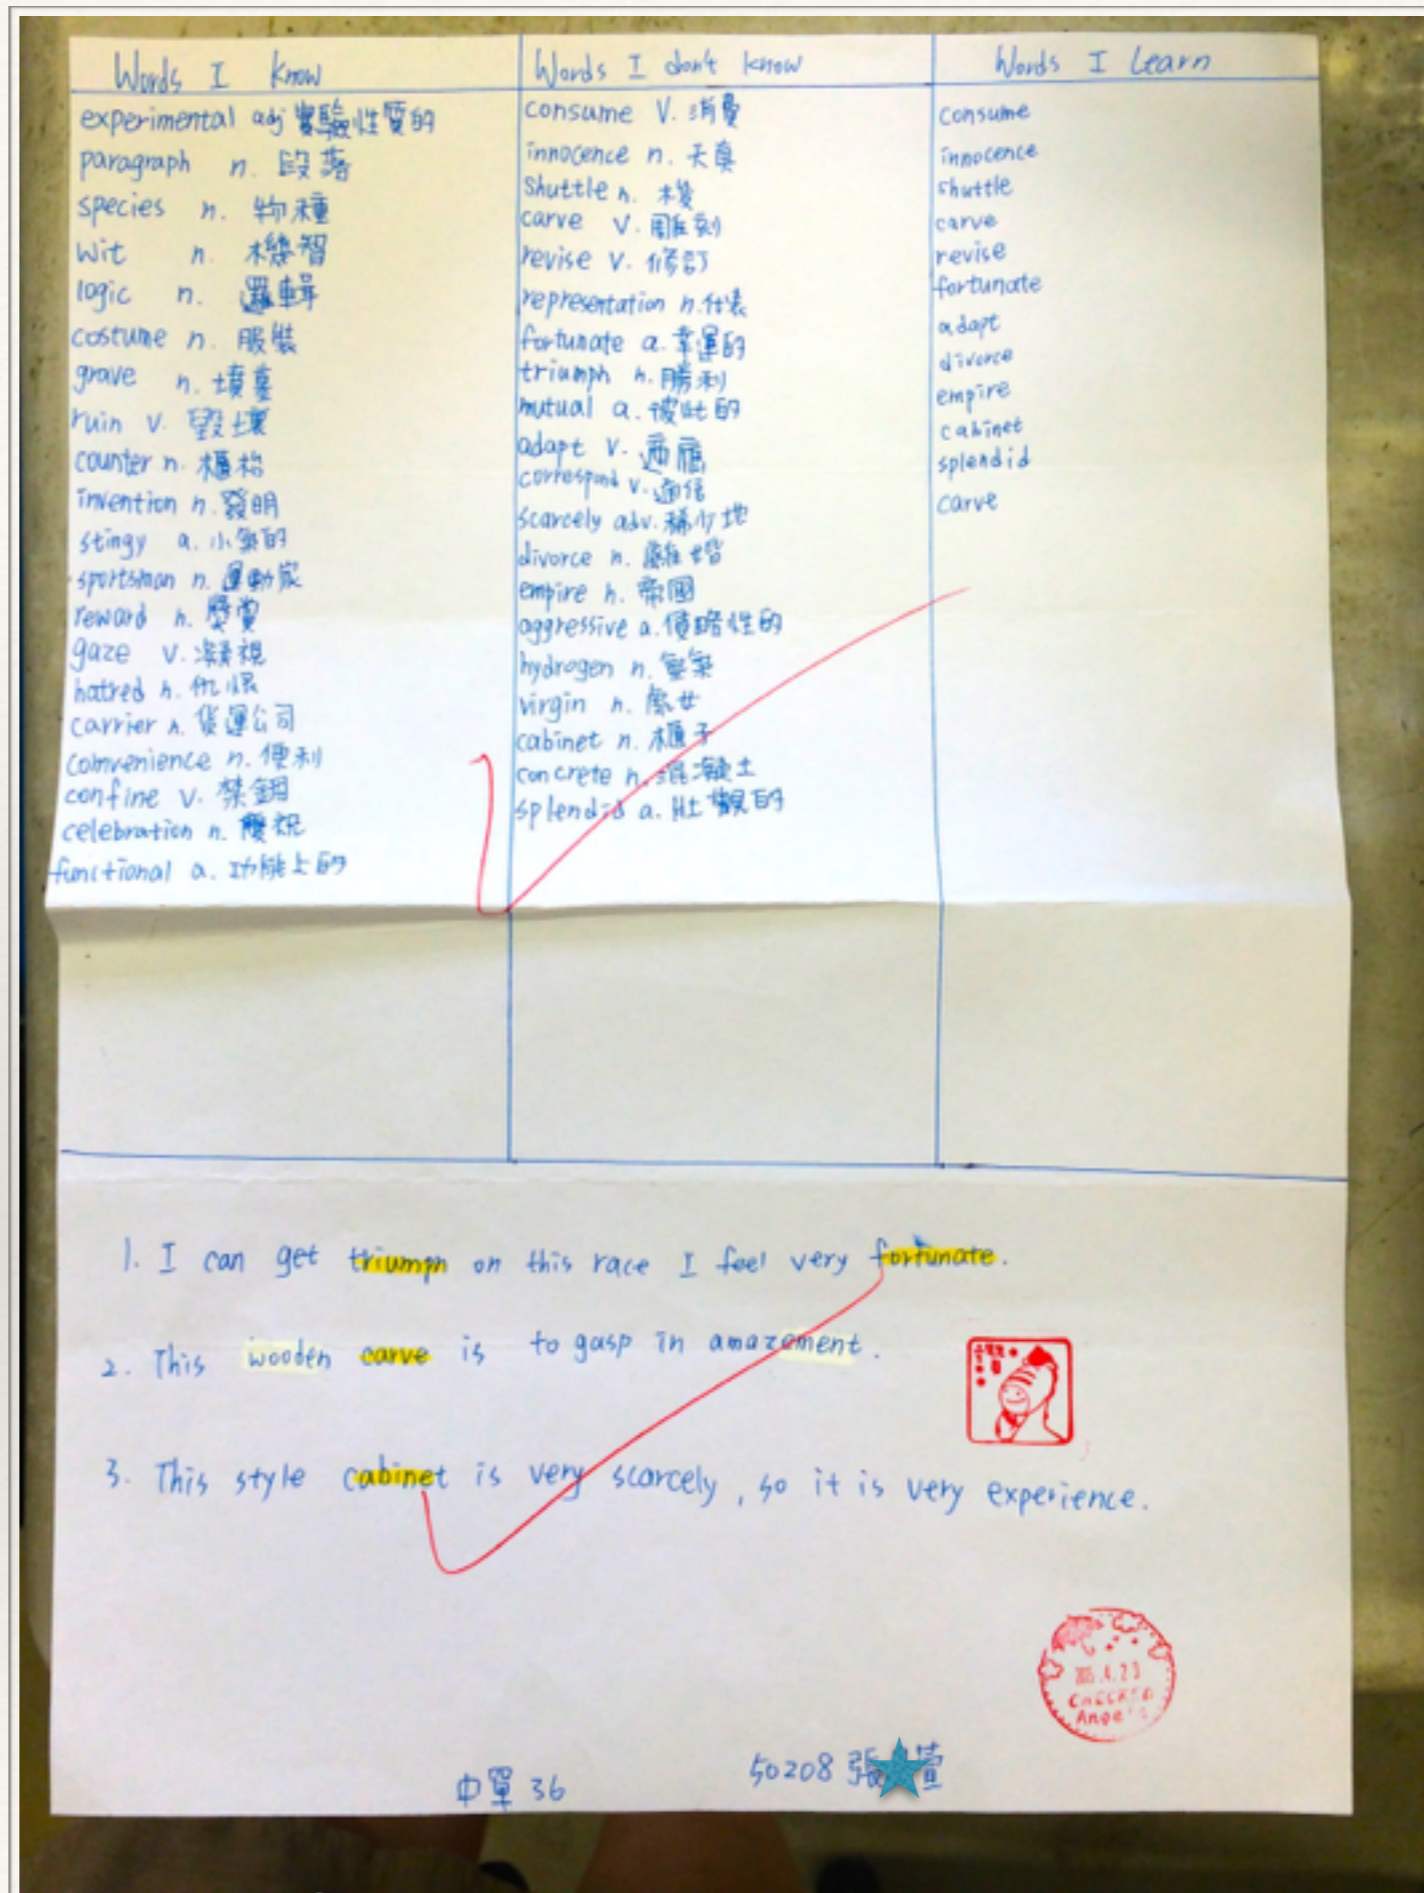 Words I know
experimental adj 實驗性質的
paragraph n. 段落
species n. 物種
wit n. 機智
logic n. 邏輯
costume n. 服裝
grave n. 墳墓
ruin v. 毀壞
counter n. 櫃枱
invention n. 發明
stingy a. 小氣的
sportsman n. 運動家
reward n. 獎賞
gaze v. 凝視
hatred n. 仇恨
carrier n. 貨運公司
comvenience n. 便利
confine v. 禁錮
celebration n. 慶祝
functional a. 功能上的
Words I don't know
consume V. 消費
innocence n. 天真
shuttle n. 梭
carve v. 雕刻
revise v. 修訂
representation n. 代表
fortunate a. 幸運的
triumph n. 勝利
mutual a. 彼此的
adapt v. 適應
correspond v. 通信
scarcely adv. 稀少地
divorce n. 離婚
empire n. 帝國
aggressive a. 侵略性的
hydrogen n.
virgin n. 處女
cabinet n. 櫃子
concrete n. 混凝土
splendid a. 壯觀的
Words I Learn
consume
innocence
shuttle
carve
revise
fortunate
adapt
divorce
empire
cabinet
splendid
carve
1. I can get triumph on this race I feel very fortunate.
2. This wooden carve is to gasp in amazement.
3. This style cabinet is very scarcely, so it is very experience.
4.23
CHECKED
中單 36
50208 張 萱